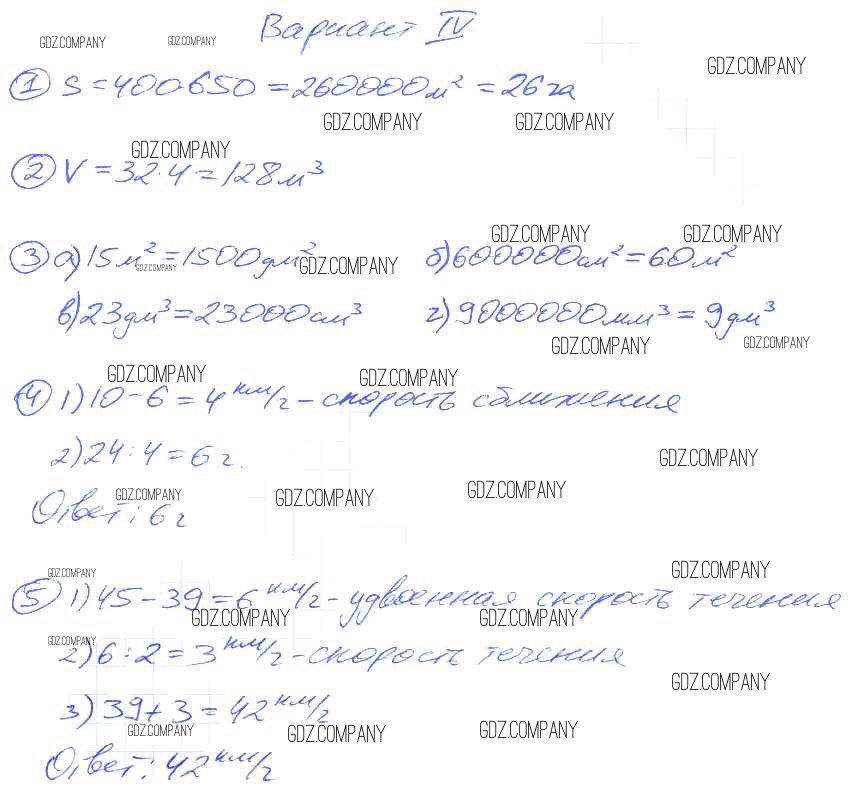 Вариант IV
GDZ.COMPANY GDZ.COMPANY GDZ.COMPANY
① S = 400·650 = 260000 м² = 26 га
GDZ.COMPANY GDZ.COMPANY
GDZ.COMPANY
② V = 32·4 = 128 м³
GDZ.COMPANY GDZ.COMPANY
③ а) 15 м² = 1500 дм² б) 600000 см² = 60 м²
GDZ.COMPANY GDZ.COMPANY
в) 23 дм³ = 23000 см³ г) 9000000 мм³ = 9 дм³
GDZ.COMPANY GDZ.COMPANY
GDZ.COMPANY GDZ.COMPANY
④ 1) 10 - 6 = 4 км/г - скорость сближения
2) 24 : 4 = 6 г.
GDZ.COMPANY
GDZ.COMPANY GDZ.COMPANY GDZ.COMPANY
Ответ: 6 г
GDZ.COMPANY GDZ.COMPANY
⑤ 1) 45 - 39 = 6 км/г - удвоенная скорость течения
GDZ.COMPANY GDZ.COMPANY
GDZ.COMPANY
2) 6 : 2 = 3 км/г - скорость течения
GDZ.COMPANY
3) 39 + 3 = 42 км/г
GDZ.COMPANY GDZ.COMPANY GDZ.COMPANY
Ответ: 42 км/г